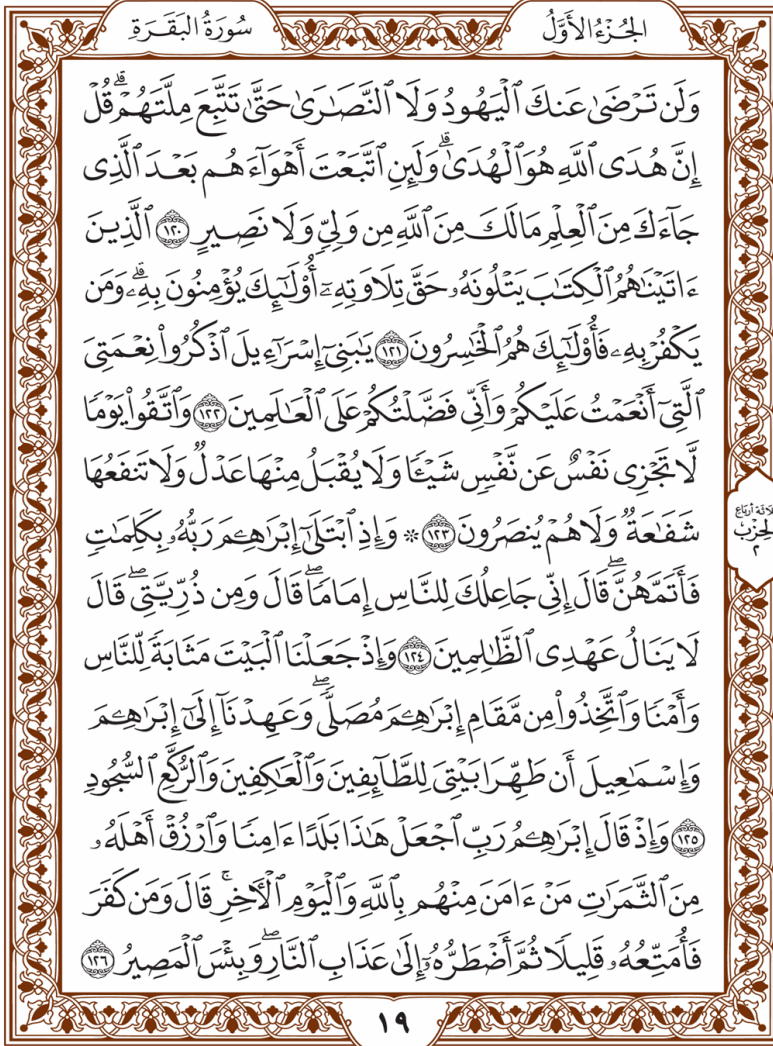 الجُزْءُ الأَوَّلُ
سُورَةُ البَقَرَةِ
وَلَن تَرْضَىٰ عَنكَ ٱلْيَهُودُ وَلَا ٱلنَّصَـٰرَىٰ حَتَّىٰ تَتَّبِعَ مِلَّتَهُمْۗ قُلْ
إِنَّ هُدَى ٱللَّهِ هُوَ ٱلْهُدَىٰۗ وَلَئِنِ ٱتَّبَعْتَ أَهْوَآءَهُم بَعْدَ ٱلَّذِى
جَآءَكَ مِنَ ٱلْعِلْمِ مَا لَكَ مِنَ ٱللَّهِ مِن وَلِىٍّ وَلَا نَصِيرٍ ١٢٠ ٱلَّذِينَ
ءَاتَيْنَـٰهُمُ ٱلْكِتَـٰبَ يَتْلُونَهُۥ حَقَّ تِلَاوَتِهِۦٓ أُو۟لَـٰٓئِكَ يُؤْمِنُونَ بِهِۦۗ وَمَن
يَكْفُرْ بِهِۦ فَأُو۟لَـٰٓئِكَ هُمُ ٱلْخَـٰسِرُونَ ١٢١ يَـٰبَنِىٓ إِسْرَٰٓءِيلَ ٱذْكُرُوا۟ نِعْمَتِىَ
ٱلَّتِىٓ أَنْعَمْتُ عَلَيْكُمْ وَأَنِّى فَضَّلْتُكُمْ عَلَى ٱلْعَـٰلَمِينَ ١٢٢ وَٱتَّقُوا۟ يَوْمًا
لَّا تَجْزِى نَفْسٌ عَن نَّفْسٍ شَيْـًٔا وَلَا يُقْبَلُ مِنْهَا عَدْلٌ وَلَا تَنفَعُهَا
شَفَـٰعَةٌ وَلَا هُمْ يُنصَرُونَ ١٢٣ * وَإِذِ ٱبْتَلَىٰٓ إِبْرَٰهِـۧمَ رَبُّهُۥ بِكَلِمَـٰتٍ
فَأَتَمَّهُنَّۖ قَالَ إِنِّى جَاعِلُكَ لِلنَّاسِ إِمَامًاۖ قَالَ وَمِن ذُرِّيَّتِىۖ قَالَ
لَا يَنَالُ عَهْدِى ٱلظَّـٰلِمِينَ ١٢٤ وَإِذْ جَعَلْنَا ٱلْبَيْتَ مَثَابَةً لِّلنَّاسِ
وَأَمْنًا وَٱتَّخِذُوا۟ مِن مَّقَامِ إِبْرَٰهِـۧمَ مُصَلًّىۖ وَعَهِدْنَآ إِلَىٰٓ إِبْرَٰهِـۧمَ
وَإِسْمَـٰعِيلَ أَن طَهِّرَا بَيْتِىَ لِلطَّآئِفِينَ وَٱلْعَـٰكِفِينَ وَٱلرُّكَّعِ ٱلسُّجُودِ
١٢٥ وَإِذْ قَالَ إِبْرَٰهِـۧمُ رَبِّ ٱجْعَلْ هَـٰذَا بَلَدًا ءَامِنًا وَٱرْزُقْ أَهْلَهُۥ
مِنَ ٱلثَّمَرَٰتِ مَنْ ءَامَنَ مِنْهُم بِٱللَّهِ وَٱلْيَوْمِ ٱلْـَٔاخِرِۚ قَالَ وَمَن كَفَرَ
فَأُمَتِّعُهُۥ قَلِيلًا ثُمَّ أَضْطَرُّهُۥٓ إِلَىٰ عَذَابِ ٱلنَّارِۖ وَبِئْسَ ٱلْمَصِيرُ ١٢٦
أرباع
٢
١٩